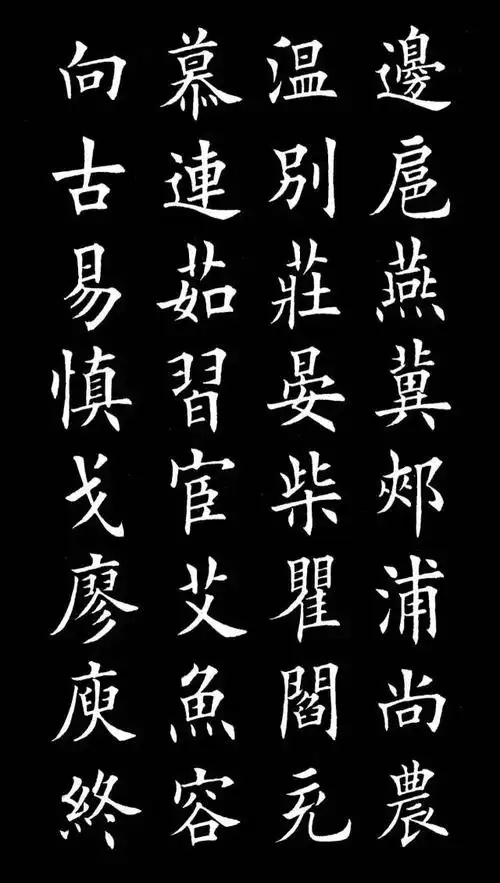 邊扈燕冀郟浦尚農
温別莊晏柴瞿閻充
慕連茹習宦艾魚容
向古易慎戈廖庾終